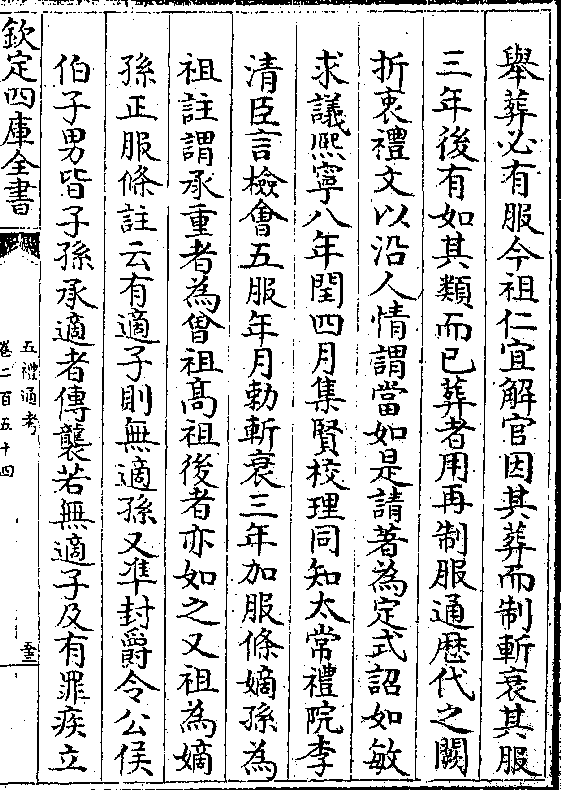 舉葬必有服今祖仁宜解官因其葬而制斬衰其服
三年後有如其類而已葬者用再制服通歴代之闕
折衷禮文以沿人情謂當如是請著為定式詔如敏
求議熙寧八年閏四月集賢校理同知太常禮院李
清臣言檢㑹五服年月勅斬衰三年加服條嫡孫為
祖註謂承重者為曽祖髙祖後者亦如之又祖為嫡
孫正服條註云有適子則無適孫又準封爵令公侯
伯子男皆子孫承適者傳襲若無適子及有罪疾立
欽定四庫全書
五禮通考
卷二百五十四